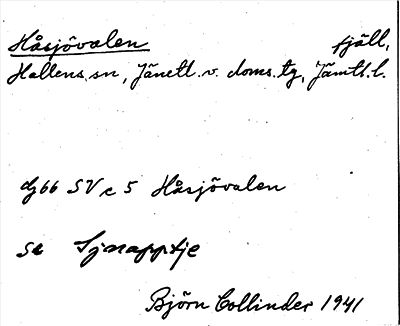 Håsjövalen fjäll,
Hallens sn, Jämtl. v. doms. tg, Jämtl. l.
dg 66 SV c 5 Håsjövalen
se Sjnapptje
Björn Collinder 1941